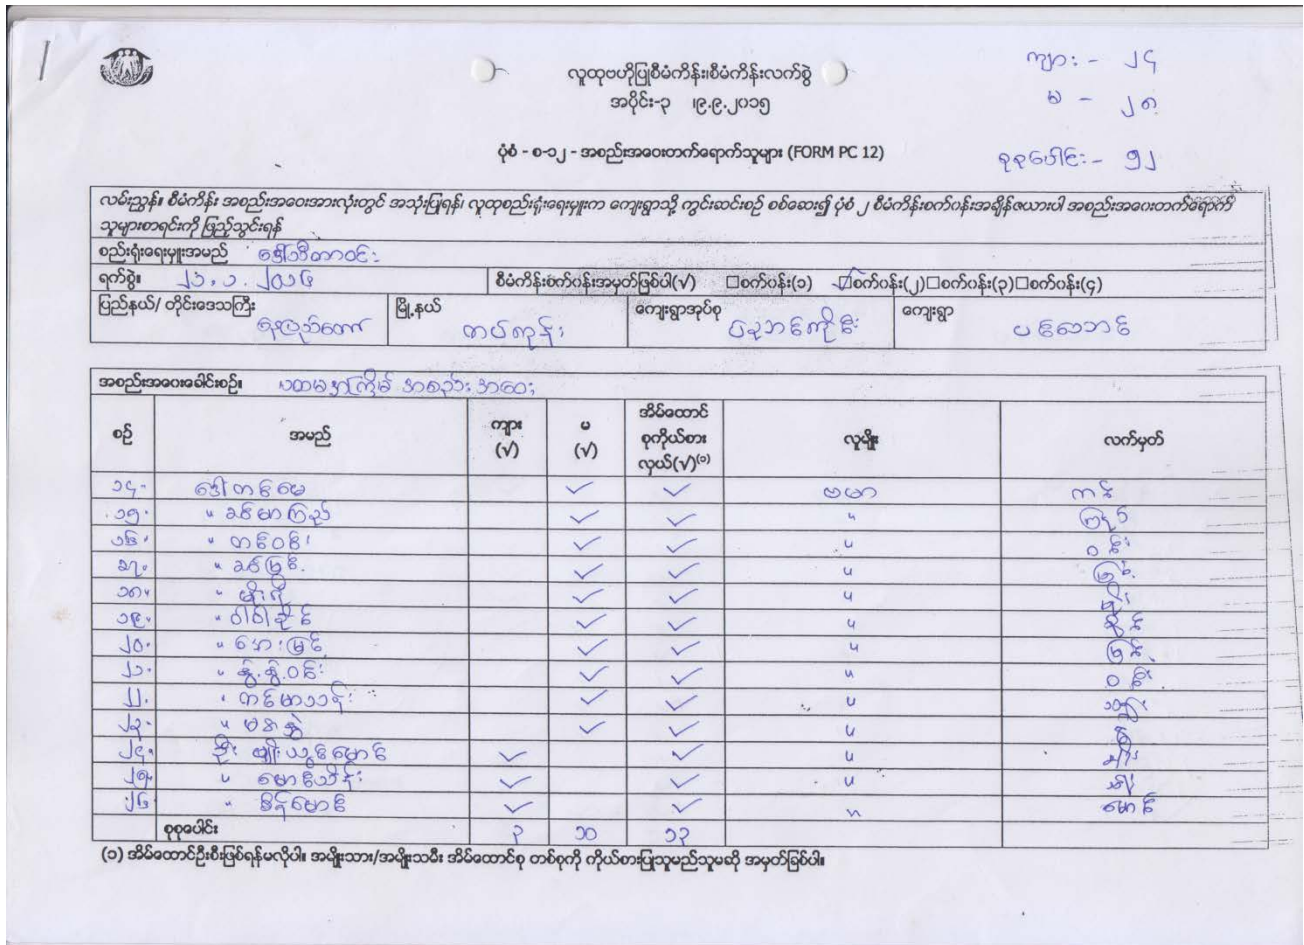 ကျား - ၂၄
မ - ၂၈
စုစုပေါင်း - ၅၂
လူထုဗဟိုပြုစီမံကိန်း၊စီမံကိန်းလက်စွဲ
အပိုင်း-၃ ၊၉.၉.၂၀၁၅
ပုံစံ - စ-၁၂ - အစည်းအဝေးတက်ရောက်သူများ (FORM PC 12)
လမ်းညွှန်။ စီမံကိန်း အစည်းအဝေးအားလုံးတွင် အသုံးပြုရန်၊ လူထုစည်းရုံးရေးမှူးက ကျေးရွာသို့ ကွင်းဆင်းစဉ် စစ်ဆေး၍ ပုံစံ ၂ စီမံကိန်းစက်ဝန်းအချိန်ဇယားပါ အစည်းအဝေးတက်ရောက်
သူများစာရင်းကို ဖြည့်သွင်းရန်
စည်းရုံးရေးမှူးအမည် ဒေါ်သီတာဝင်း
ရက်စွဲ။ ၂၁.၁.၂၀၁၆ စီမံကိန်းစက်ဝန်းအမှတ်ဖြစ်ပါ(√) □စက်ဝန်း(၁) ☑စက်ဝန်း(၂)□စက်ဝန်း(၃)□စက်ဝန်း(၄)
ပြည်နယ်/ တိုင်းဒေသကြီး နေပြည်တော် မြို့နယ် တပ်ကုန်း ကျေးရွာအုပ်စု ကျေးရွာ
အစည်းအဝေးခေါင်းစဉ်။ ပထမအကြိမ် အစည်းအဝေး
စဉ် အမည် ကျား (√) မ (√) အိမ်ထောင်စုကိုယ်စားလှယ်(√)⁽¹⁾ လူမျိုး လက်မှတ်
၁၄. ဒေါ်တင်မေ ✓ ✓ ဗမာ တင်
၁၅. " ခင်မာကြည် ✓ ✓ " ကြည်
၁၆. " တင်ဝင်း ✓ ✓ " ဝင်း
၁၇. " ခင်မြင့် ✓ ✓ " မြင့်
၁၈. " ✓ ✓ "
၁၉. " ဝါဝါခိုင် ✓ ✓ " ခိုင်
၂၀. " အေးမြင့် ✓ ✓ " မြင့်
၂၁. " နွဲ့နွဲ့ဝင်း ✓ ✓ " ဝင်း
၂၂. " တင်မာသန်း ✓ ✓ " သန်း
၂၃. " ✓ ✓ "
၂၄. ဦး မျိုးယွန်မောင် ✓ ✓ "
၂၅. " မောင်သိန်း ✓ ✓ "
၂၆. " စိန်မောင် ✓ ✓ " မောင်
စုစုပေါင်း ၃ ၁၀ ၁၃
(၁) အိမ်ထောင်ဦးစီးဖြစ်ရန်မလိုပါ။ အမျိုးသား/အမျိုးသမီး အိမ်ထောင်စု တစ်စုကို ကိုယ်စားပြုသူမည်သူမဆို အမှတ်ခြစ်ပါ။